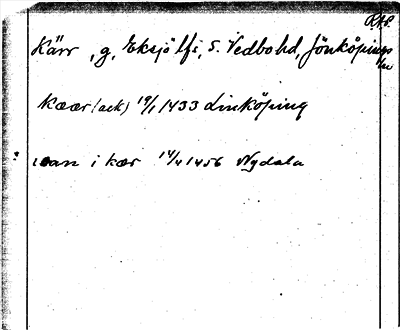 R.A.P.
Kärr, g, Eksjö lfs, S. Vedbo hd, Jönköpings
län
Kæær (ack) 19/1 1433 Linköping
: i kær 14/4 1456 Nydala